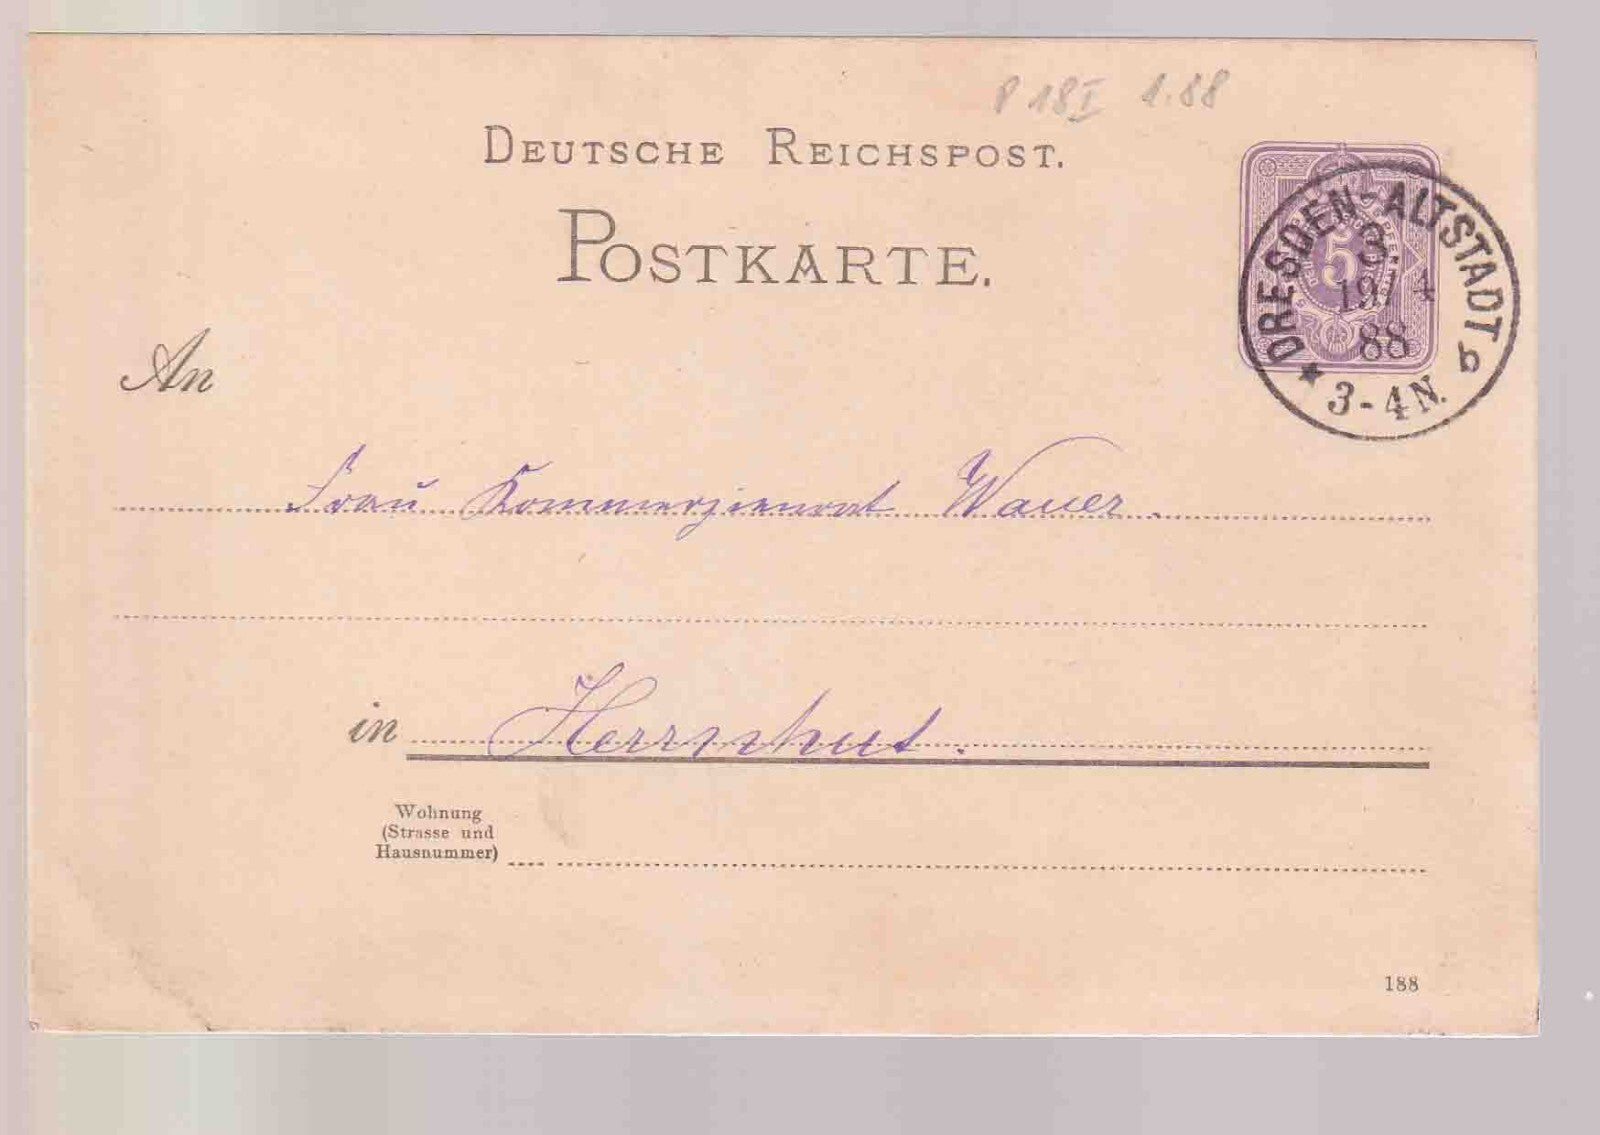 P 18 I 1.88
DEUTSCHE REICHSPOST.
POSTKARTE.
DRESDEN-ALTSTADT
3.
5
19/4
88
b
3-4N.
An
Frau Kommerzienrat Wauer.
in Herrnhut.
Wohnung
(Strasse und
Hausnummer)
188